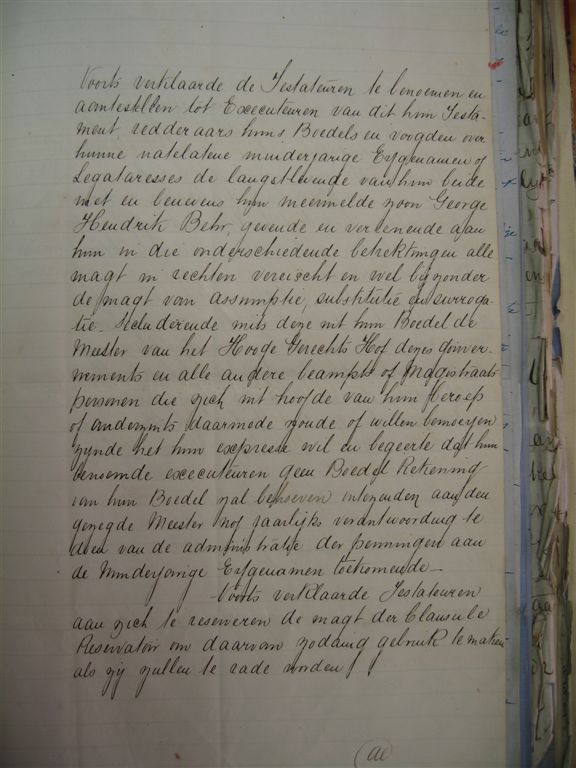 Voorts verklaarde de Testateuren te benoemen en
aantestellen tot Executeuren van dit hun Testa-
ment, redderaars huns Boedels en voogden over
hunne natelatene minderjarige Erfgenamen of
Legataresses de langstlevende van hun beide
met en benevens hun meermelde zoon George
Hendrik Behr, gevende en verleenende aan
hun in die onderscheidende betrekkingen alle
magt in rechten vereischt en wel byzonder
de magt van assumptie, substitutie en surroga-
tie. Secluderende mits deze uit hun Boedel de
Meester van het Hooge Gerechts Hof dezes gouver-
nements en alle andere beampte of Magistraats
personen die zich uit hoofde van hun beroep
of anderzints daarmede zoude of willen bemoeyen
zynde het hun expresse wil en begeerte dat hun
benoemde executeuren geen Boedel Rekening
van hun Boedel zal behoeven intezenden aan den
gezegde Meester nog jaarlijks verantwoording te
doen van de administratie der penningen aan
de Minderjarige Erfgenamen toekomende -
Voorts verklaarde Testateuren
aan zich te reserveren de magt der Clausule
Reservatoir om daarvan zodanig gebruik te maken
als zij zullen te rade worden